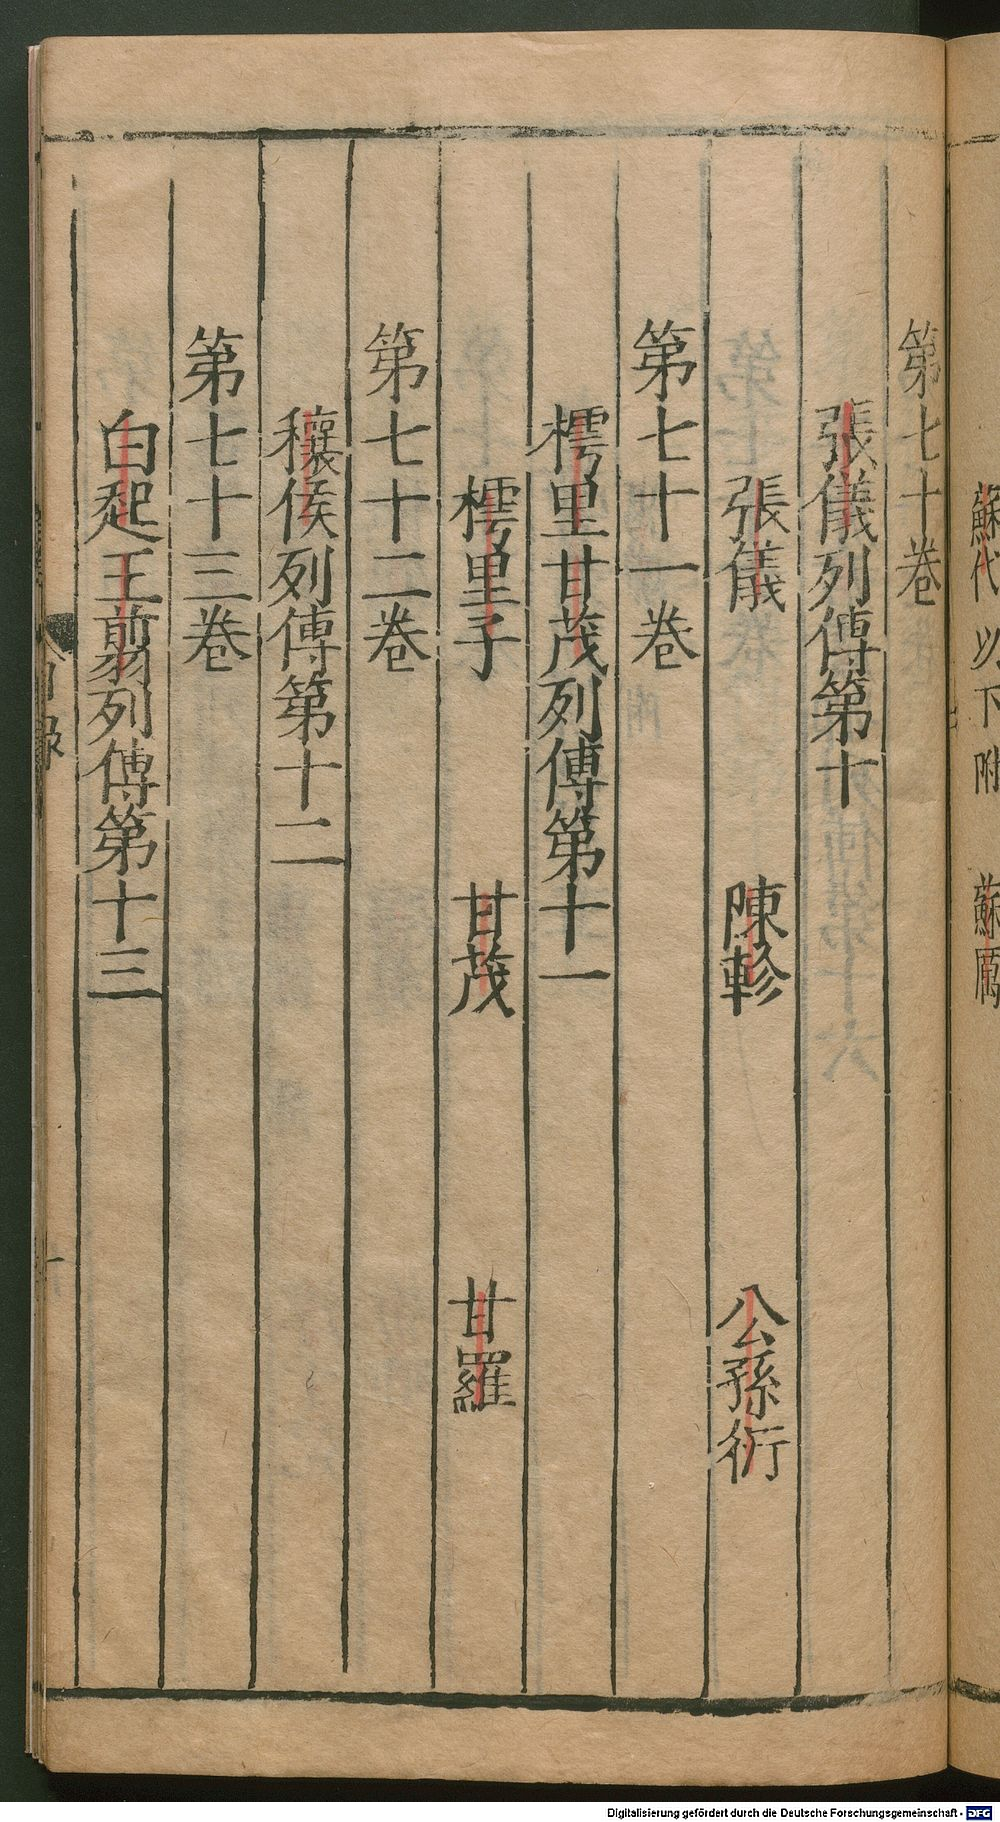 蘇代以下附 蘇厲
第七十卷
張儀列傳第十
張儀 陳軫 公孫衍
第七十一卷
樗里甘茂列傳第十一
樗里子 甘茂 甘羅
第七十二卷
穰侯列傳第十二
第七十三卷
白起王翦列傳第十三
目錄
Digitalisierung gefördert durch die Deutsche Forschungsgemeinschaft - DFG